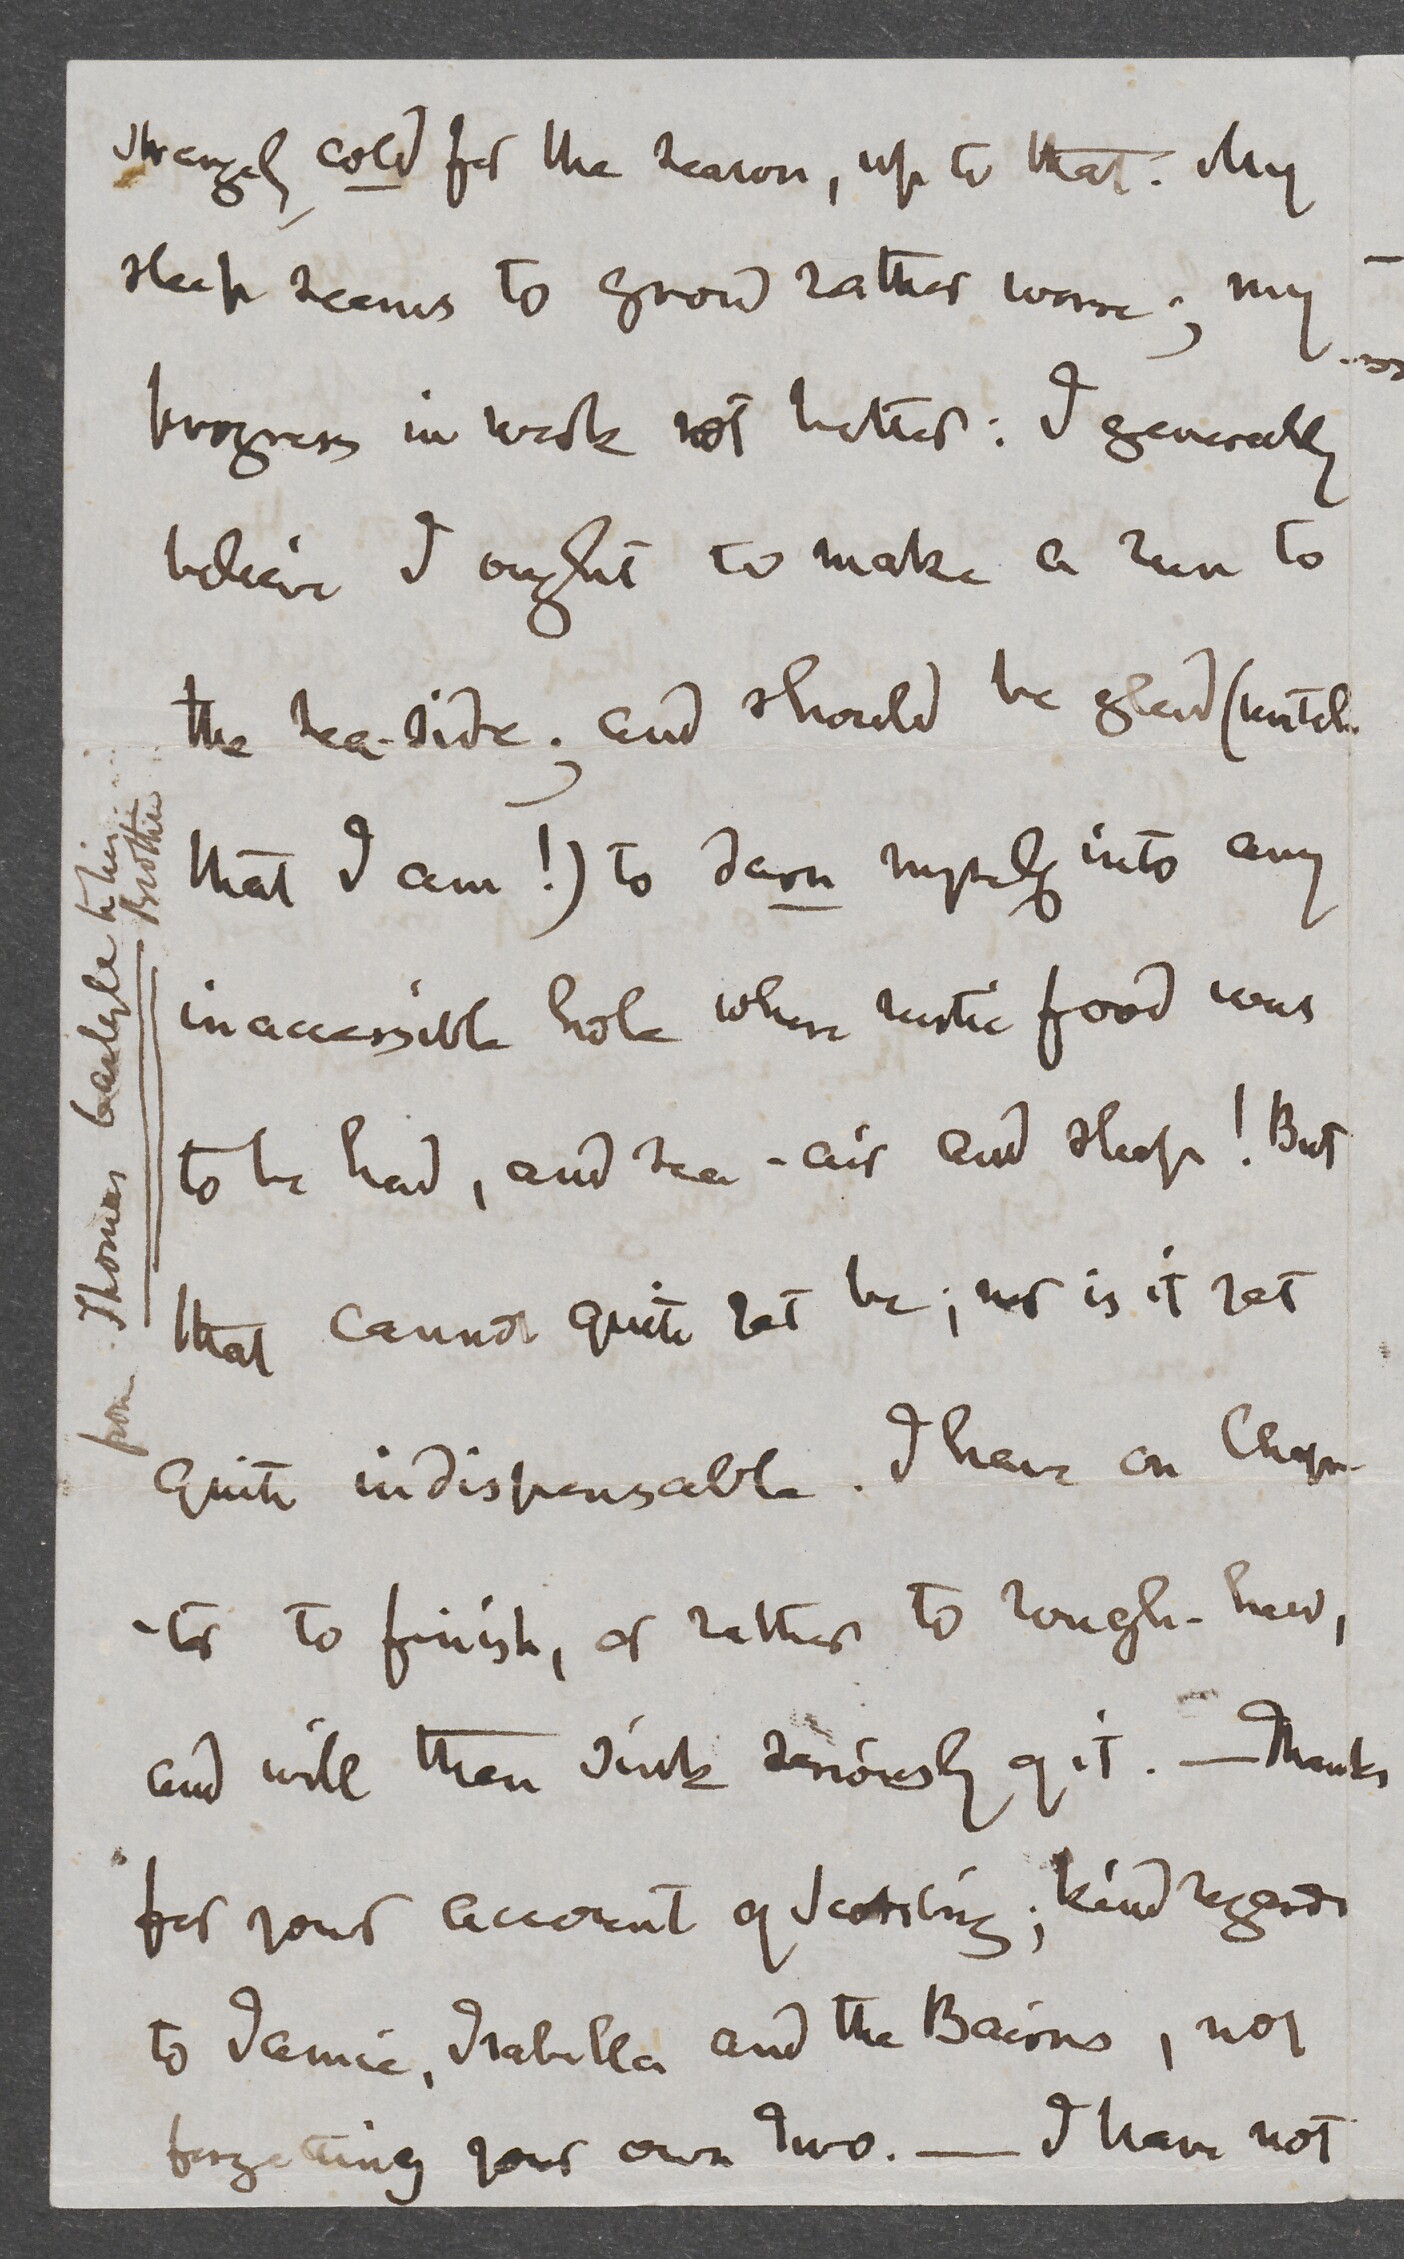 strangely cold for the season, up to that. My
sleep seems to grow rather worse; my
progress in work not better: I generally
believe I ought to make a run to
the sea-side; and should be glad (
that I am!) to darn myself into any
inaccessible hole where rustic food was
to be had, and sea-air and sleep! But
that cannot quite yet be; nor is it yet
quite indispensable. I have on Chap-
-ter to finish, or rather to rough-hew,
and will then think seriously of it. — Thanks
for your account of Scotsbrig; kind regards
to Jamie, Isabella and the Bairns, not
forgetting your own Two. — I have not
from Thomas Carlyle to his
Brother